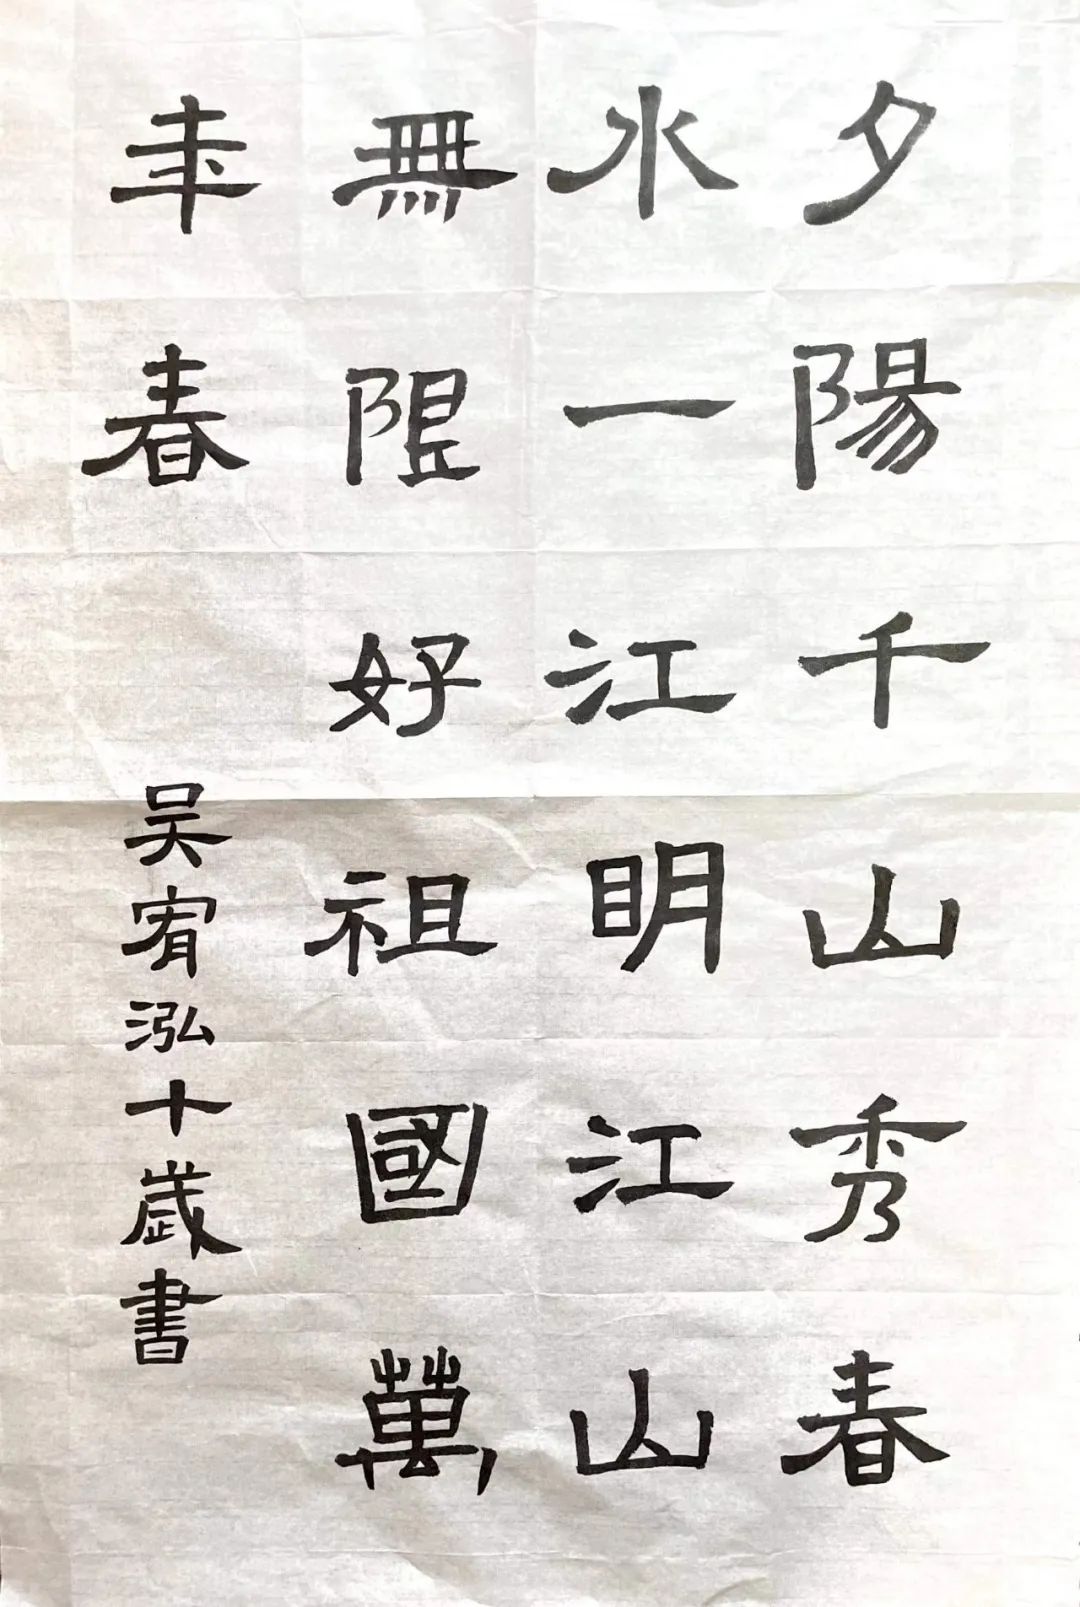 夕陽千山秀春
水一江明江山
無限好祖國萬
年春
吴宥泓十歲書